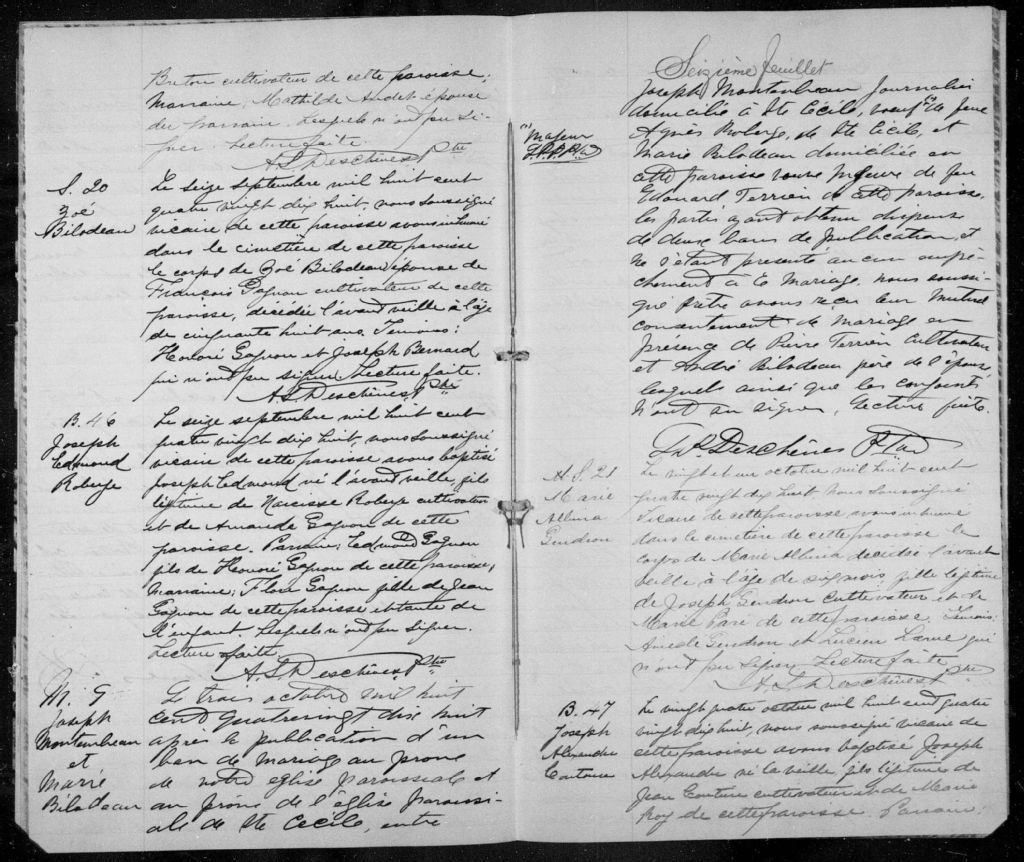 Breton cultivateur de cette paroisse;
Marraine, Mathilde Audet épouse
du parrain. Lesquels n'ont pu si-
gner. Lecture faite.
A. S. Deschênes Ptre
S. 20
Zoé
Bilodeau
Le seize septembre mil huit cent
quatre vingt dix huit, nous soussigné
vicaire de cette paroisse avons inhumé
dans le cimetière de cette paroisse
le corps de Zoé Bilodeau épouse de
François Gagnon cultivateur de cette
paroisse, décédée l'avant veille à l'âge
de cinquante huit ans. Temoins:
Honoré Gagnon et Joseph Bernard
qui n'ont pu signer. Lecture faite.
A. S. Deschênes Ptre
B. 46
Joseph
Edmond
Roberge
Le seize septembre mil huit cent
quatre vingt dix huit, nous soussigné
vicaire de cette paroisse, avons baptisé
Joseph Edmond né l'avant veille, fils
légitime de Narcisse Roberge cultivateur
et de Amanda Gagnon de cette
paroisse. Parrain; Edmond Gagnon
fils de Honoré Gagnon de cette paroisse,
Marraine; Flore Gagnon fille de Jean
Gagnon de cette paroisse et tante de
l'enfant. Lesquels n'ont pu signer.
Lecture faite
A. S. Deschênes Ptre
M. 9
Joseph
Montembeau
et
Marie
Bilodeau
Le trois octobre mil huit
cent quatrevingt dix huit
après la publication d'un
ban de mariage au prone
de notre eglise paroissiale et
au prone de l'église paroissi-
ale de Ste Cécile, entre
Seizième feuillet
Joseph Montembeau Journalier
domicilié à Ste Cécile, veuf de feue
Agnès Roberge, de Ste Cécile, et
Marie Bilodeau domiciliée en
cette paroisse veuve de feu
Edouard Terrien de cette paroisse,
les parties ayant obtenu dispense
de deux bans de publication, et
ne s'étant présenté aucun empê-
chement à ce mariage, nous soussi-
gné prêtre avons reçu leur mutuel
consentement de mariage en
présence de Pierre Terrien cultivateur
et André Bilodeau père de l'épouse
lesquels ainsi que les conjoints
n'ont su signer, Lecture faite.
Deschênes
Majeur
S. 21
Marie
Allina
Gendron
Le vingt et un octobre mil huit cent
quatre vingt dix huit nous soussigné
Vicaire de cette paroisse avons inhumé
dans le cimetière de cette paroisse le
corps de Marie Allina décédée l'avant
veille, à l'âge de six mois, fille légitime
de Joseph Gendron cultivateur et de
Marie Paré de cette paroisse. Temoins:
Gendron et Lucien Larue qui
n'ont pu signer. Lecture faite.
A. S. Deschênes Ptre
B. 47
Joseph
Alexandre
Couture
Le vingt quatre octobre mil huit cent quatre
vingt dix huit, nous soussigné vicaire de
cette paroisse avons baptisé Joseph
Alexandre né la veille, fils légitime de
Jean Couture cultivateur et de Marie
Roy de cette paroisse. Parrain;